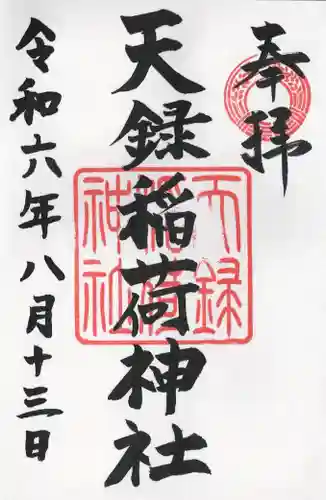 奉拝
天録稲荷神社
令和六年八月十三日
天録
稲荷
神社